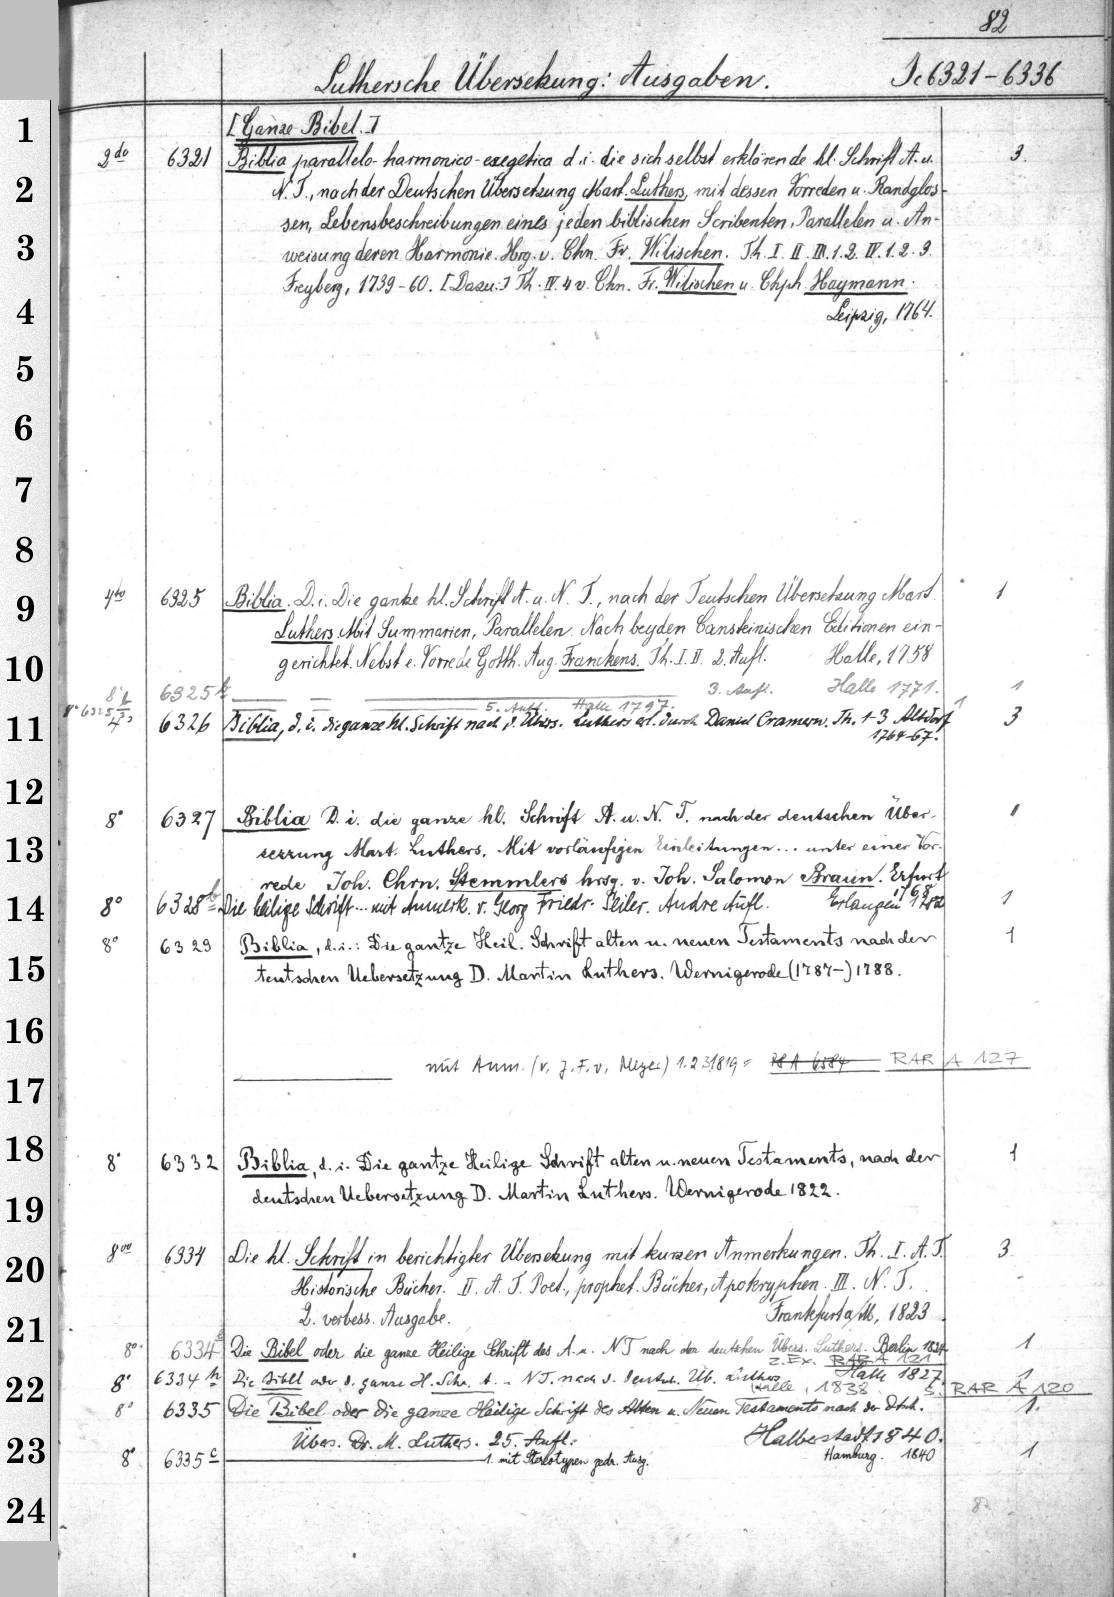 82
Luthersche Übersetzung: Ausgaben. Ic 6321-6336
1
[Ganze Bibel.]
2do 6321 Biblia parallelo-harmonico-exegetica d. i. die sich selbst erklärende hl. Schrift A. u. 3.
2 N. T., nach der Deutschen Übersetzung Mart. Luthers, mit dessen Vorreden u. Randglos-
sen, Lebensbeschreibungen eines jeden biblischen Scribenten, Parallelen u. An-
3 weisung deren Harmonie. Hrg. v. Chn. Fr. Wilischen. Th. I. II. III. 1. 2. IV. 1. 2. 3.
Freyberg, 1739-60. [Dazu:] Th. IV. 4 v. Chn. Fr. Wilischen u. Chph. Haymann.
4 Leipzig, 1764.
5
6
7
8
4to 6325 Biblia. D. i. Die gantze hl. Schrift A. u. N. T., nach der Teutschen Übersetzung Mart. 1
9 Luthers. Mit Summarien, Parallelen. Nach beyden Cansteinischen Editionen ein-
10 gerichtet. Nebst e. Vorrede Gotth. Aug. Franckens. Th. I. II. 2. Aufl. Halle, 1758
8° 6325 b 3. Aufl. Halle 1771. 1
8° 6325 5. Aufl. Halle 1797. 1
11 4° 6326 Biblia, d. i. die ganze hl. Schrift nach d. Übers. Luthers erl. durch Daniel Cramern. Th. 1-3 Altdorf 3
1764-67.
12
8° 6327 Biblia D. i. die ganze hl. Schrift A. u. N. T. nach der deutschen Über- 1
13 setzung Mart. Luthers. Mit vorläufigen Einleitungen... unter einer Vor-
rede Joh. Chrn. Stemmlers hrsg. v. Joh. Salomon Braun. Erfurt
1768
14 8° 6328 b Die heilige Schrift... mit Anmerk. v. Georg Friedr. Seiler. Andre Aufl. Erlangen 1
8° 6329 Biblia, d. i.: Die gantze Heil. Schrift alten u. neuen Testaments nach der 1
15 teutschen Uebersetzung D. Martin Luthers. Wernigerode (1787-) 1788.
16
mit Anm. (v. J. F. v. Meyer) 1. 2. 3. 1819 = RS A 6584 RAR A 127
17
18 8° 6332 Biblia, d. i. Die gantze Heilige Schrift alten u. neuen Testaments, nach der 1
19 deutschen Uebersetzung D. Martin Luthers. Wernigerode 1822.
8vo 6334 Die hl. Schrift in berichtigter Übersetzung mit kurzen Anmerkungen. Th. I. A. T. 3
20 Historische Bücher. II. A. T. Poet., prophet. Bücher, Apokryphen. III. N. T.
2. verbess. Ausgabe. Frankfurt a/M, 1823
21
8°. 6334 Die Bibel oder die ganze Heilige Schrift des A. u. NT nach der deutschen Übers. Luthers. Berlin 1824 1
2. Ex. RAR A 121
22 8° 6334 h Die Bibel oder d. ganze H. Schr. A. - NT. nach d. deutsch. Üb. Luthers Halle 1827. 1
Halle, 1838 s. RAR A 120
8° 6335 Die Bibel oder die ganze Heilige Schrift des Alten u. Neuen Testaments nach der dtsch. 1.
Übers. Dr. M. Luthers. 25. Aufl. Halberstadt 1840.
23 8° 6335 c 1. mit Stereotypen gedr. Ausg. Hamburg. 1840 1
24
82